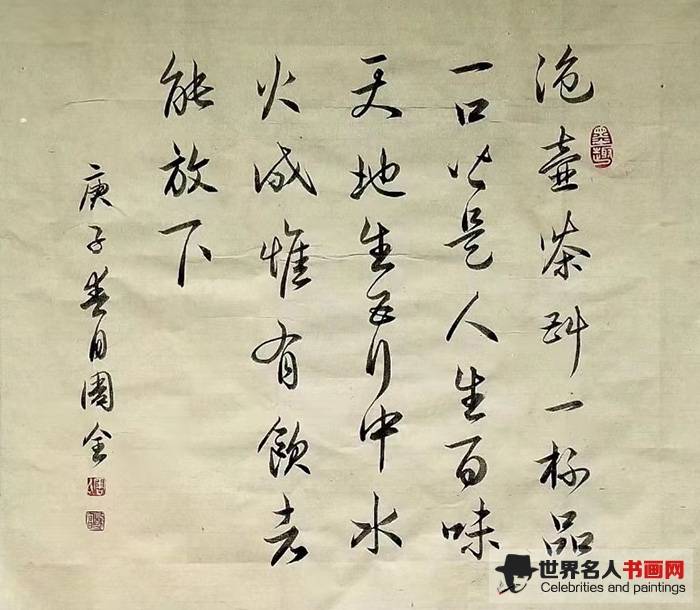 泡壶茶斟一杯品
一口皆是人生百味
天地生五行中水
火成惟有飲者
能放下
庚子春日國全
墨趣
世界名人书画网
Celebrities and paintings